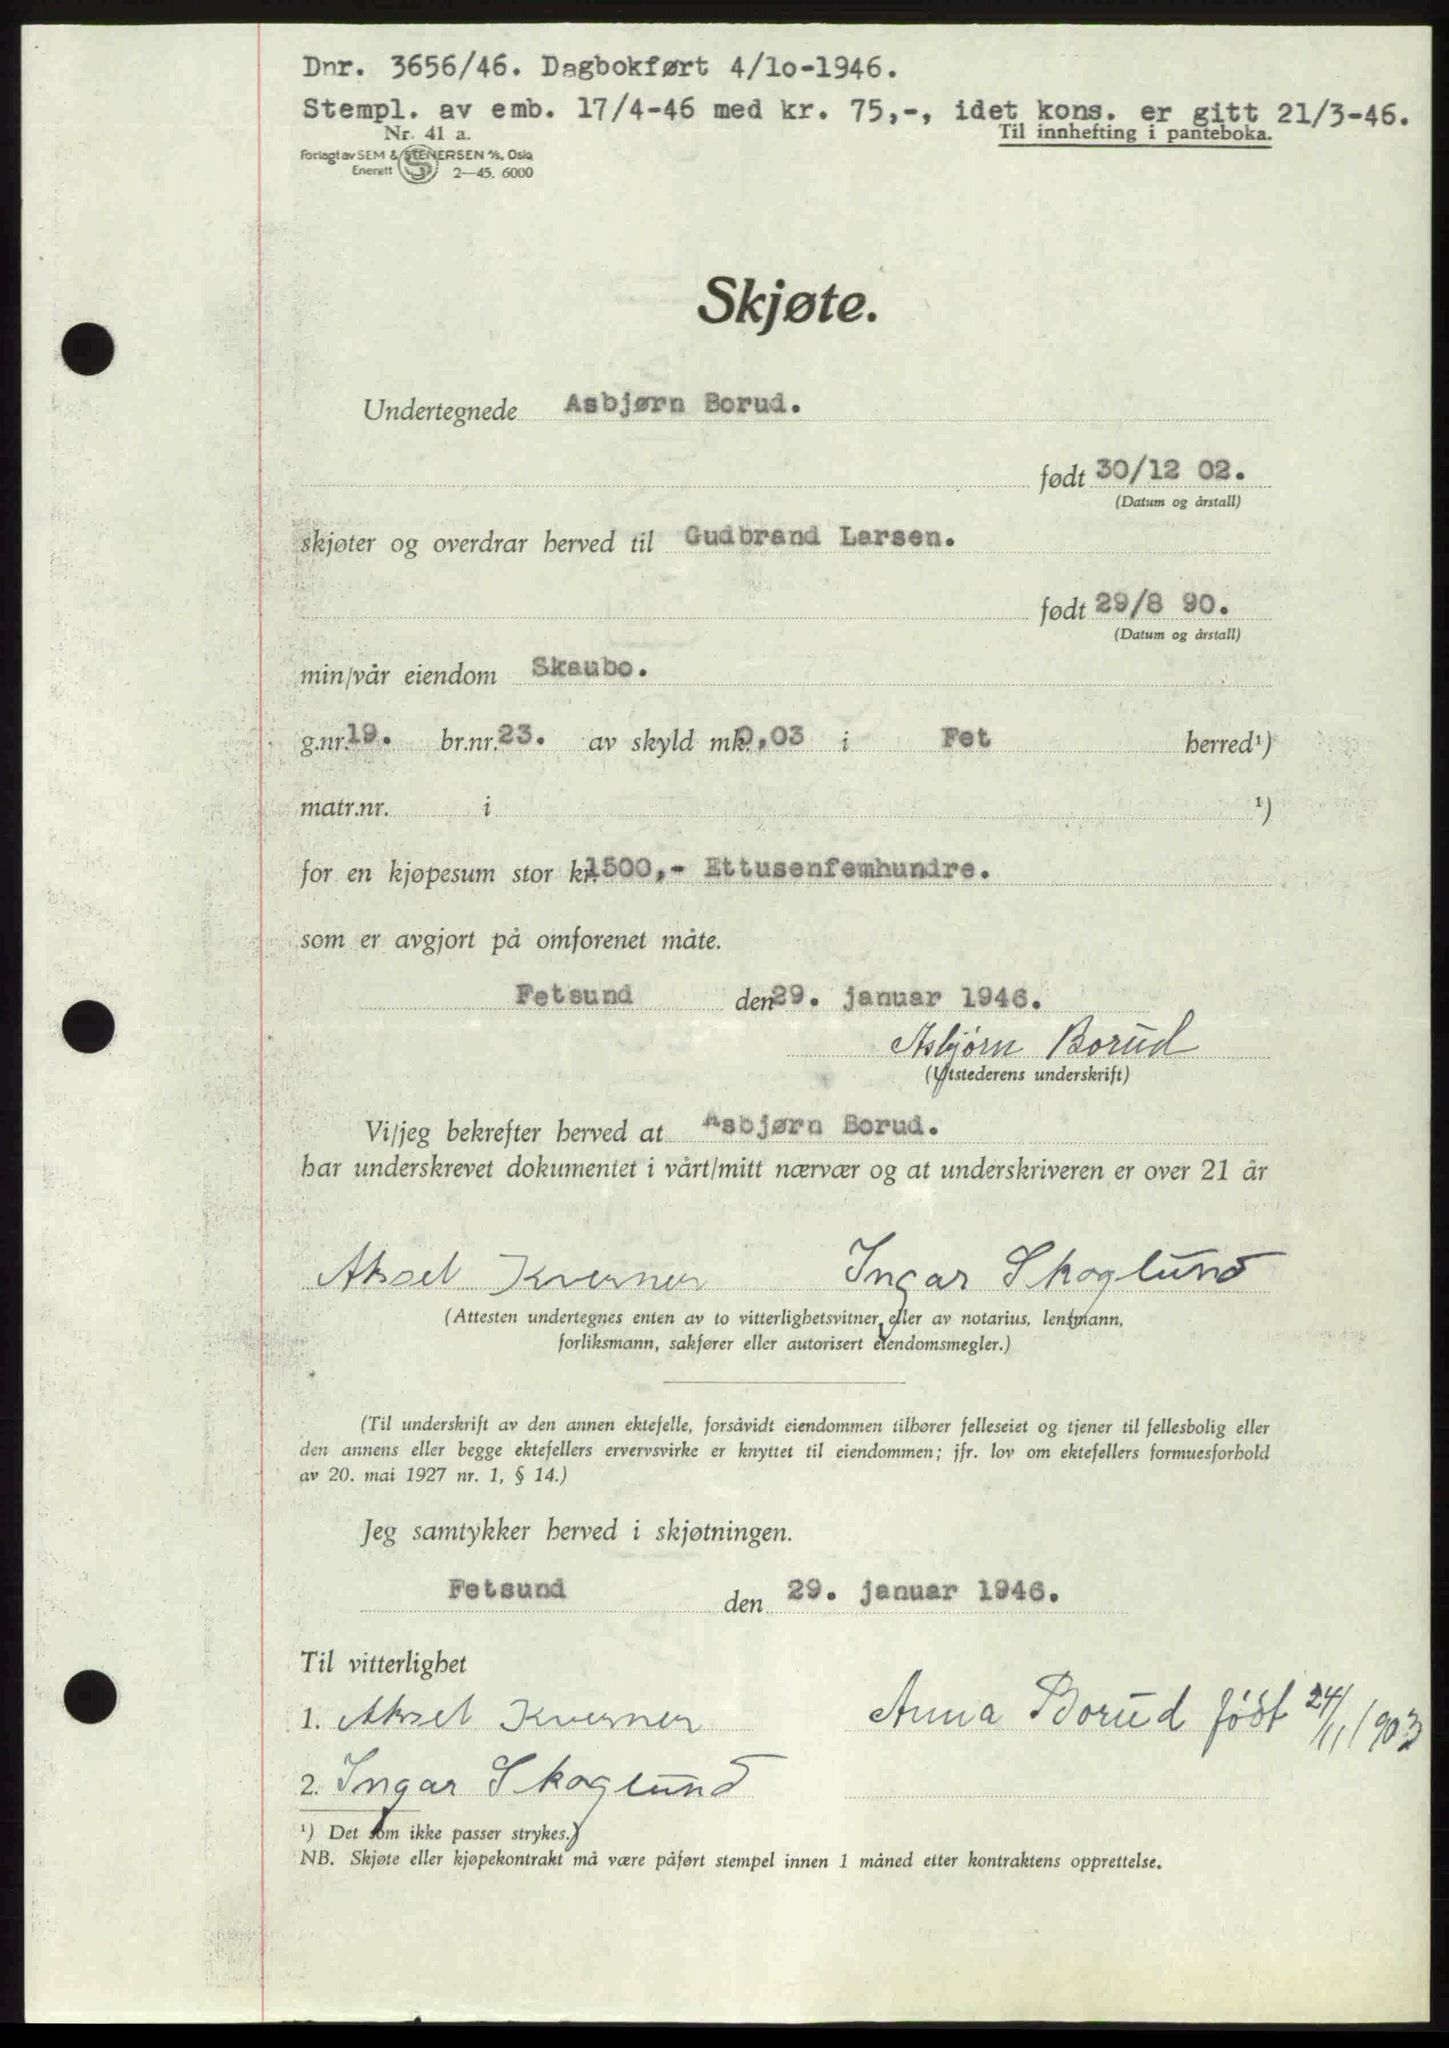 Dnr. 3656/46. Dagbokført 4/1o-1946.
Stempl. av emb. 17/4-46 med kr. 75,-, idet kons. er gitt 21/3-46.
Nr. 41 a.
Til innhefting i panteboka.
Forlagt av SEM & STENERSEN A/S, Oslo
Enerett 2—45. 6000
Skjøte.
Undertegnede Asbjørn Borud.
født 30/12 02.
(Datum og årstall)
skjøter og overdrar herved til Gudbrand Larsen.
født 29/8 90.
(Datum og årstall)
min/vår eiendom Skaubo.
g.nr. 19. br.nr. 23. av skyld mk. 0,03 i Fet herred¹)
matr.nr. i ¹)
for en kjøpesum stor kr. 1500,- Ettusenfemhundre.
som er avgjort på omforenet måte.
Fetsund den 29. januar 1946.
Asbjørn Borud
(Utstederens underskrift)
Vi/jeg bekrefter herved at Asbjørn Borud.
har underskrevet dokumentet i vårt/mitt nærvær og at underskriveren er over 21 år
Aksel Kverner Ingar Skoglund
(Attesten undertegnes enten av to vitterlighetsvitner eller av notarius, lensmann,
forliksmann, sakfører eller autorisert eiendomsmegler.)
(Til underskrift av den annen ektefelle, forsåvidt eiendommen tilhører felleseiet og tjener til fellesbolig eller
den annens eller begge ektefellers ervervsvirke er knyttet til eiendommen; jfr. lov om ektefellers formuesforhold
av 20. mai 1927 nr. 1, § 14.)
Jeg samtykker herved i skjøtningen.
Fetsund den 29. januar 1946.
Til vitterlighet
1. Aksel Kverner Anna Borud født 24/11 1903
2. Ingar Skoglund
¹) Det som ikke passer strykes.
NB. Skjøte eller kjøpekontrakt må være påført stempel innen 1 måned etter kontraktens opprettelse.